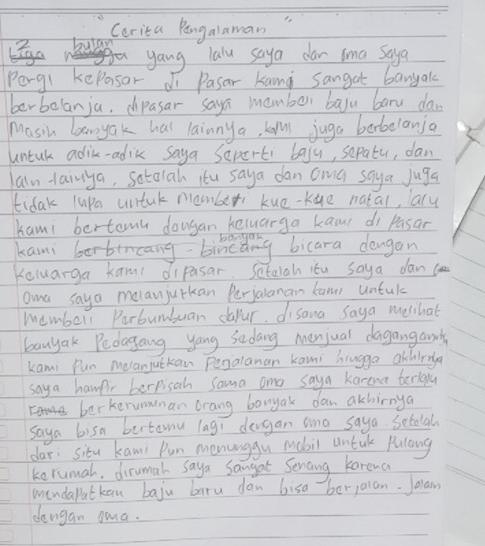 Cerita Pengalaman
2 bulan yang lalu saya dan oma saya
Pergi kePasar di Pasar kami sangat banyak
berbelanja. dipasar saya membeli baju baru dan
masih banyak hal lainnya, kami juga berbelanja
untuk adik-adik saya seperti baju, sepatu, dan
lain-lainya, setelah itu saya dan oma saya juga
tidak lupa untuk membeli kue-kue natal, lalu
kami bertemu dengan keluarga kami di Pasar
kami banyak bicara dengan
keluarga kami dipasar. Setelah itu saya dan
oma saya melanjutkan Perjalanan kami untuk
membeli Perbumbuan dapur. disana saya melihat
banyak Pedagang yang sedang menjual dagangannya,
kami Pun melanjutkan Perjalanan kami hingga akhirnya
saya hampir berpisah sama oma saya karena terlalu
berkerumunan orang banyak dan akhirnya
saya bisa bertemu lagi dengan oma saya. Setelah
dari situ kami Pun menunggu mobil untuk Pulang
kerumah. dirumah saya sangat senang karena
mendapatkan baju baru dan bisa berjalan-jalan
dengan oma.